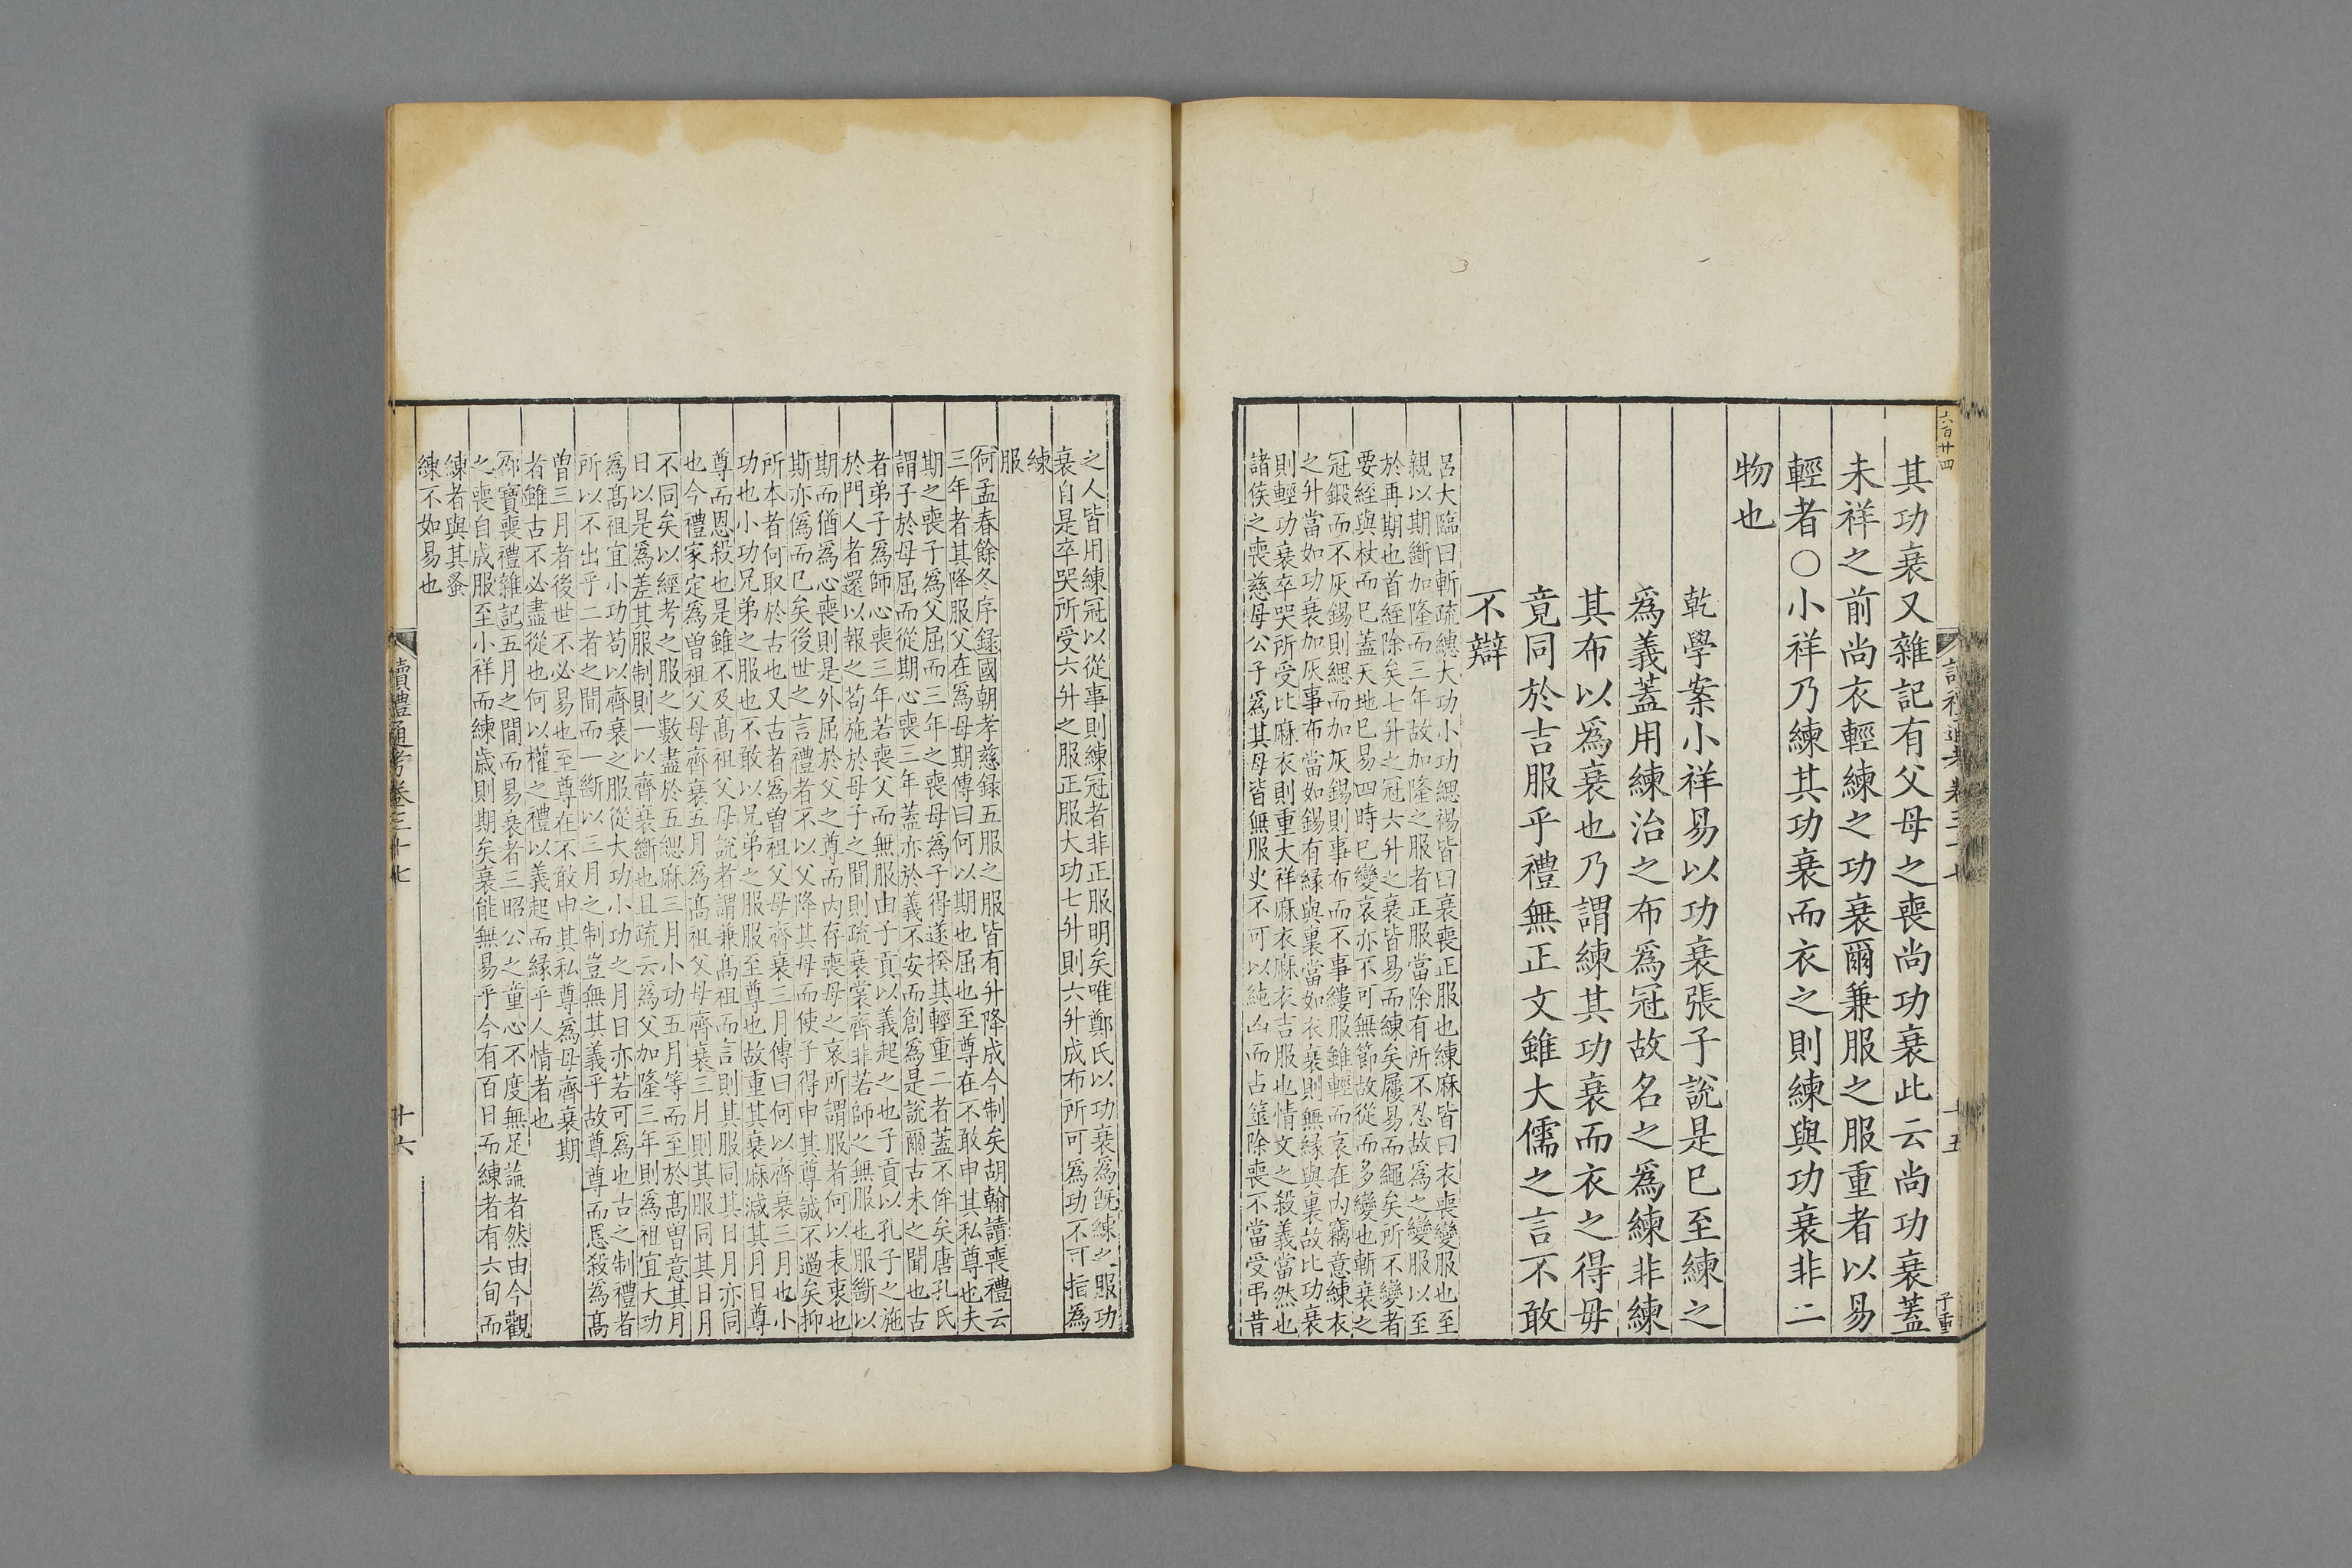 六百廿四
子重
其功衰又雜記有父母之喪尚功衰此云尚功衰蓋
未祥之前尚衣輕練之功衰爾兼服之服重者以易
輕者○小祥乃練其功衰而衣之則練與功衰非二
物也
乾學案小祥易以功衰張子說是巳至練之
爲義蓋用練治之布爲冠故名之爲練非練
其布以爲衰也乃謂練其功衰而衣之得毋
竟同於吉服乎禮無正文雖大儒之言不敢
不辯
呂大臨曰斬疏緦大功小功緦裼皆曰衰喪正服也練麻皆曰衣喪變服也至
親以期斷加隆而三年故加隆之服者正服當除有所不忍故爲之變服以至
於再期也首絰除矣七升之冠六升之衰皆易而練矣屨易而繩矣所不變者
要絰與杖而巳蓋天地巳易四時巳變哀亦不可無節故從而多變也斬衰之
冠鍛而不灰錫則緦而加灰錫則事布而不事縷服雖輕而哀在內竊意練衣
之升當如功衰加灰事布當如錫有緣與裏當如衣衰則無緣與裏故比功衰
則輕功衰卒哭所受比麻衣則重大祥麻衣麻衣吉服也情文之殺義當然也
諸侯之喪慈母公子爲其母皆無服史不可以純凶而占筮除喪不當受弔昔
之人皆用練冠以從事則練冠者非正服明矣唯鄭氏以功衰爲旣練之服功
衰自是卒哭所受六升之服正服大功七升則六升成布所可爲功不可指爲
練
服
何孟春餘冬序録國朝孝慈録五服之服皆有升降成今制矣胡翰讀喪禮云
三年者其降服父在爲母期傳曰何以期也屈也至尊在不敢申其私尊也夫
期之喪子爲父屈而三年之喪母爲子得遂揆其輕重二者蓋不侔矣唐孔氏
謂子於母屈而從期心喪三年蓋亦於義不安而創爲是說爾古未之聞也古
者弟子爲師心喪三年若喪父而無服由子貢以義起之也子貢以孔子之施
於門人者還以報之苟施於母子之間則疏衰裳齊非若師之無服也服斷以
期而猶爲心喪則是外屈於父之尊而內存喪母之哀所謂服者何以表衷也
斯亦僞而巳矣後世之言禮者不以父降其母而使子得申其尊誠不過矣抑
所本者何取於古也又古者爲曾祖父母齊衰三月傳曰何以齊衰三月也小
功也小功兄弟之服也不敢以兄弟之服服至尊也故重其衰麻減其月日尊
尊而恩殺也是雖不及髙祖父母說者謂兼髙祖而言則其服同其日月亦同
也今禮家定爲曾祖父母齊衰五月爲髙祖父母齊衰三月則其服同其日月
不同矣以經考之服之數盡於五緦麻三月小功五月等而至於髙曾意其月
日以是爲差其服制則一以齊衰斷也且疏云爲父加隆三年則爲祖宜大功
爲髙祖宜小功苟以齊衰之服從大功小功之月日亦若可爲也古之制禮者
所以不出乎二者之間而一斷以三月之制豈無其義乎故尊尊而恩殺爲髙
曾三月者後世不必易也至尊在不敢申其私尊爲母齊衰期
者雖古不必盡從也何以權之禮以義起而緣乎人情者也
邵寶喪禮雜記五月之間而易衰者三昭公之童心不度無足論者然由今觀
之喪自成服至小祥而練歲則期矣衰能無易乎今有百日而練者有六旬而
練者與其蚤
練不如易也
讀禮通考卷三十七
廿六